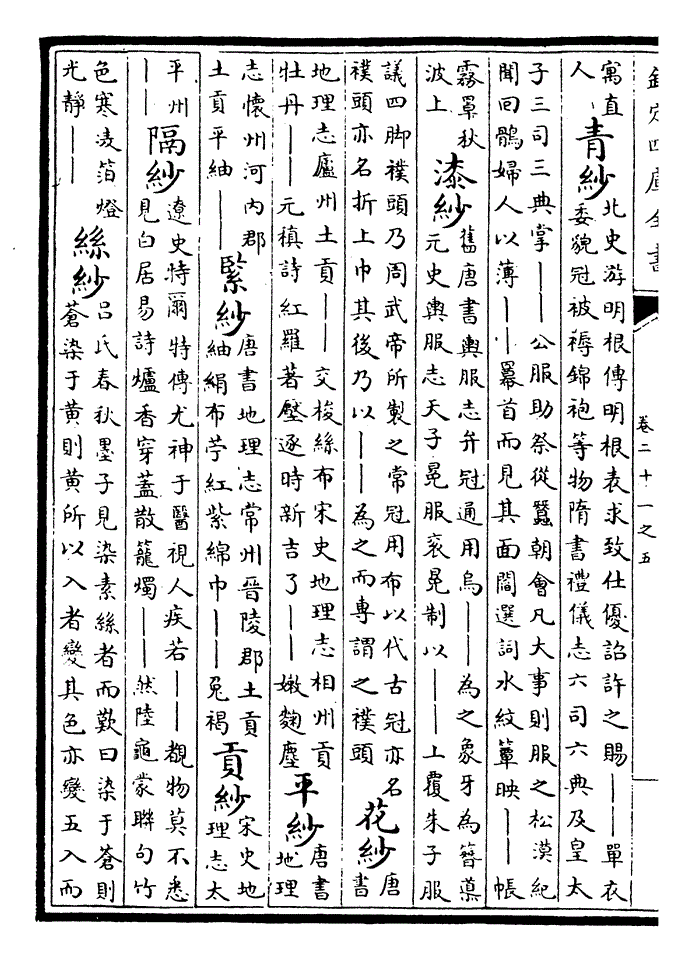 欽定四庫全書
卷二十一之五
寓直
人丶
青紗
北史游明根傳明根表求致仕優詔許之賜——單衣
委貌冠被褥錦袍等物隋書禮儀志六司六典及皇太
子三司三典掌——公服助祭從蠶朝會凡大事則服之松漠紀
聞回鶻婦人以薄——羃首而見其面閻選詞水紋簟映——帳
霧罩秋
波上
漆紗
舊唐書輿服志弁冠通用烏——為之象牙為簪導
元史輿服志天子冕服衮冕制以——上覆朱子服
議四脚襆頭乃周武帝所製之常冠用布以代古冠亦名
襆頭亦名折上巾其後乃以——為之而專謂之襆頭
花紗
唐
書
地理志廬州土貢——交梭絲布宋史地理志相州貢
牡丹——元稹詩紅羅著壓逐時新吉了——嫩麴塵
平紗
唐書
地理
志懷州河内郡
土貢平紬——
緊紗
唐書地理志常州晉陵郡土貢
紬絹布苧紅紫綿巾——兔褐
貢紗
宋史地
理志太
平州
——
隔紗
遼史特爾特傳尤神于醫視人疾若——覩物莫不悉
見白居易詩爐香穿蓋散籠燭——然陸龜蒙聯句竹
色寒凌箔燈
光靜——
絲紗
吕氏春秋墨子見染素絲者而歎曰染于蒼則
蒼染于黄則黄所以入者變其色亦變五入而